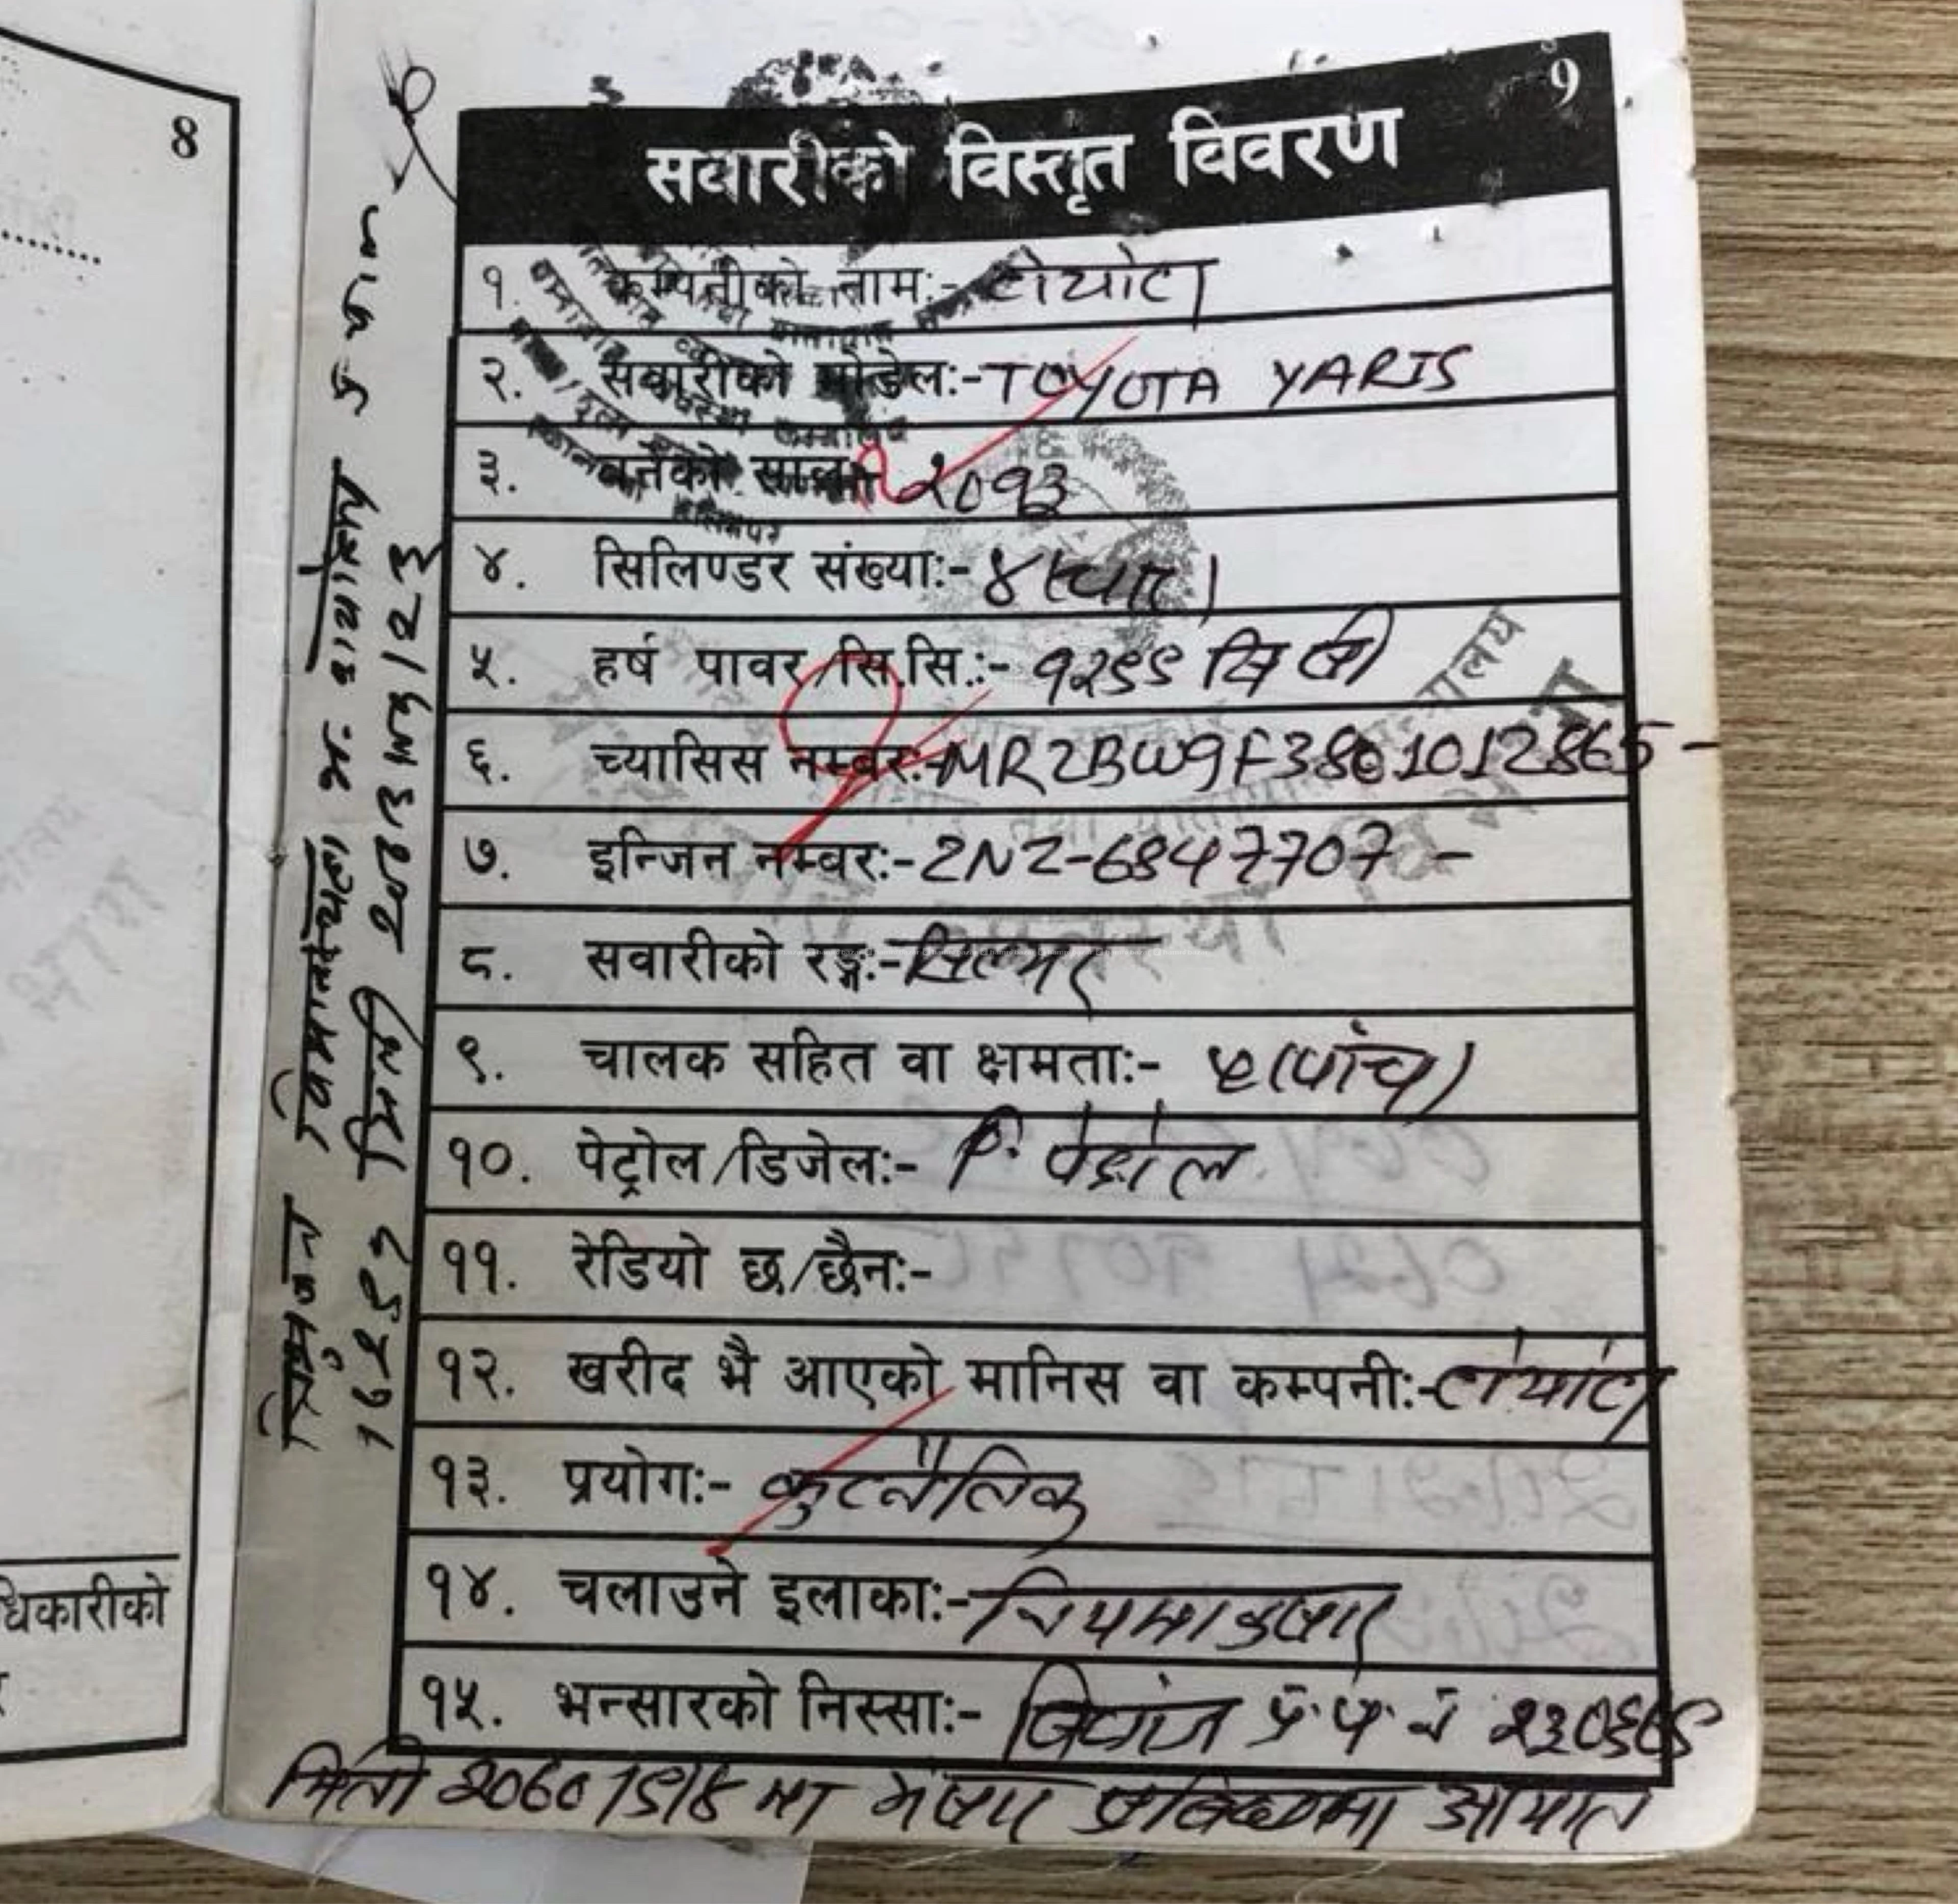 8
धिकारीको
9
सवारीको विस्तृत विवरण
१. कम्पनीको नाम:- टोयोटा
२. सवारीको मोडेल:- TOYOTA YARIS
३. बनेको साल:- २०१३
४. सिलिण्डर संख्या:- ४(चार)
५. हर्ष पावर/सि.सि.:- १२९९ सि सी
६. च्यासिस नम्बर:- MR2BW9F3801012865-
७. इन्जिन नम्बर:- 2NZ-6847707 -
८. सवारीको रङ्ग:- सिल्भर
९. चालक सहित वा क्षमता:- ५(पांच)
१०. पेट्रोल/डिजेल:- पेट्रोल
११. रेडियो छ/छैन:-
१२. खरीद भै आएको मानिस वा कम्पनी:- टोयोटा
१३. प्रयोग:- कुटनैतिक
१४. चलाउने इलाका:- नियमानुसार
१५. भन्सारको निस्सा:- प्र.प.नं
मिति २०७०/९/४ मा भंसार आयात
त्रिभुवन विमानस्थल भं. कार्यालय
मिति